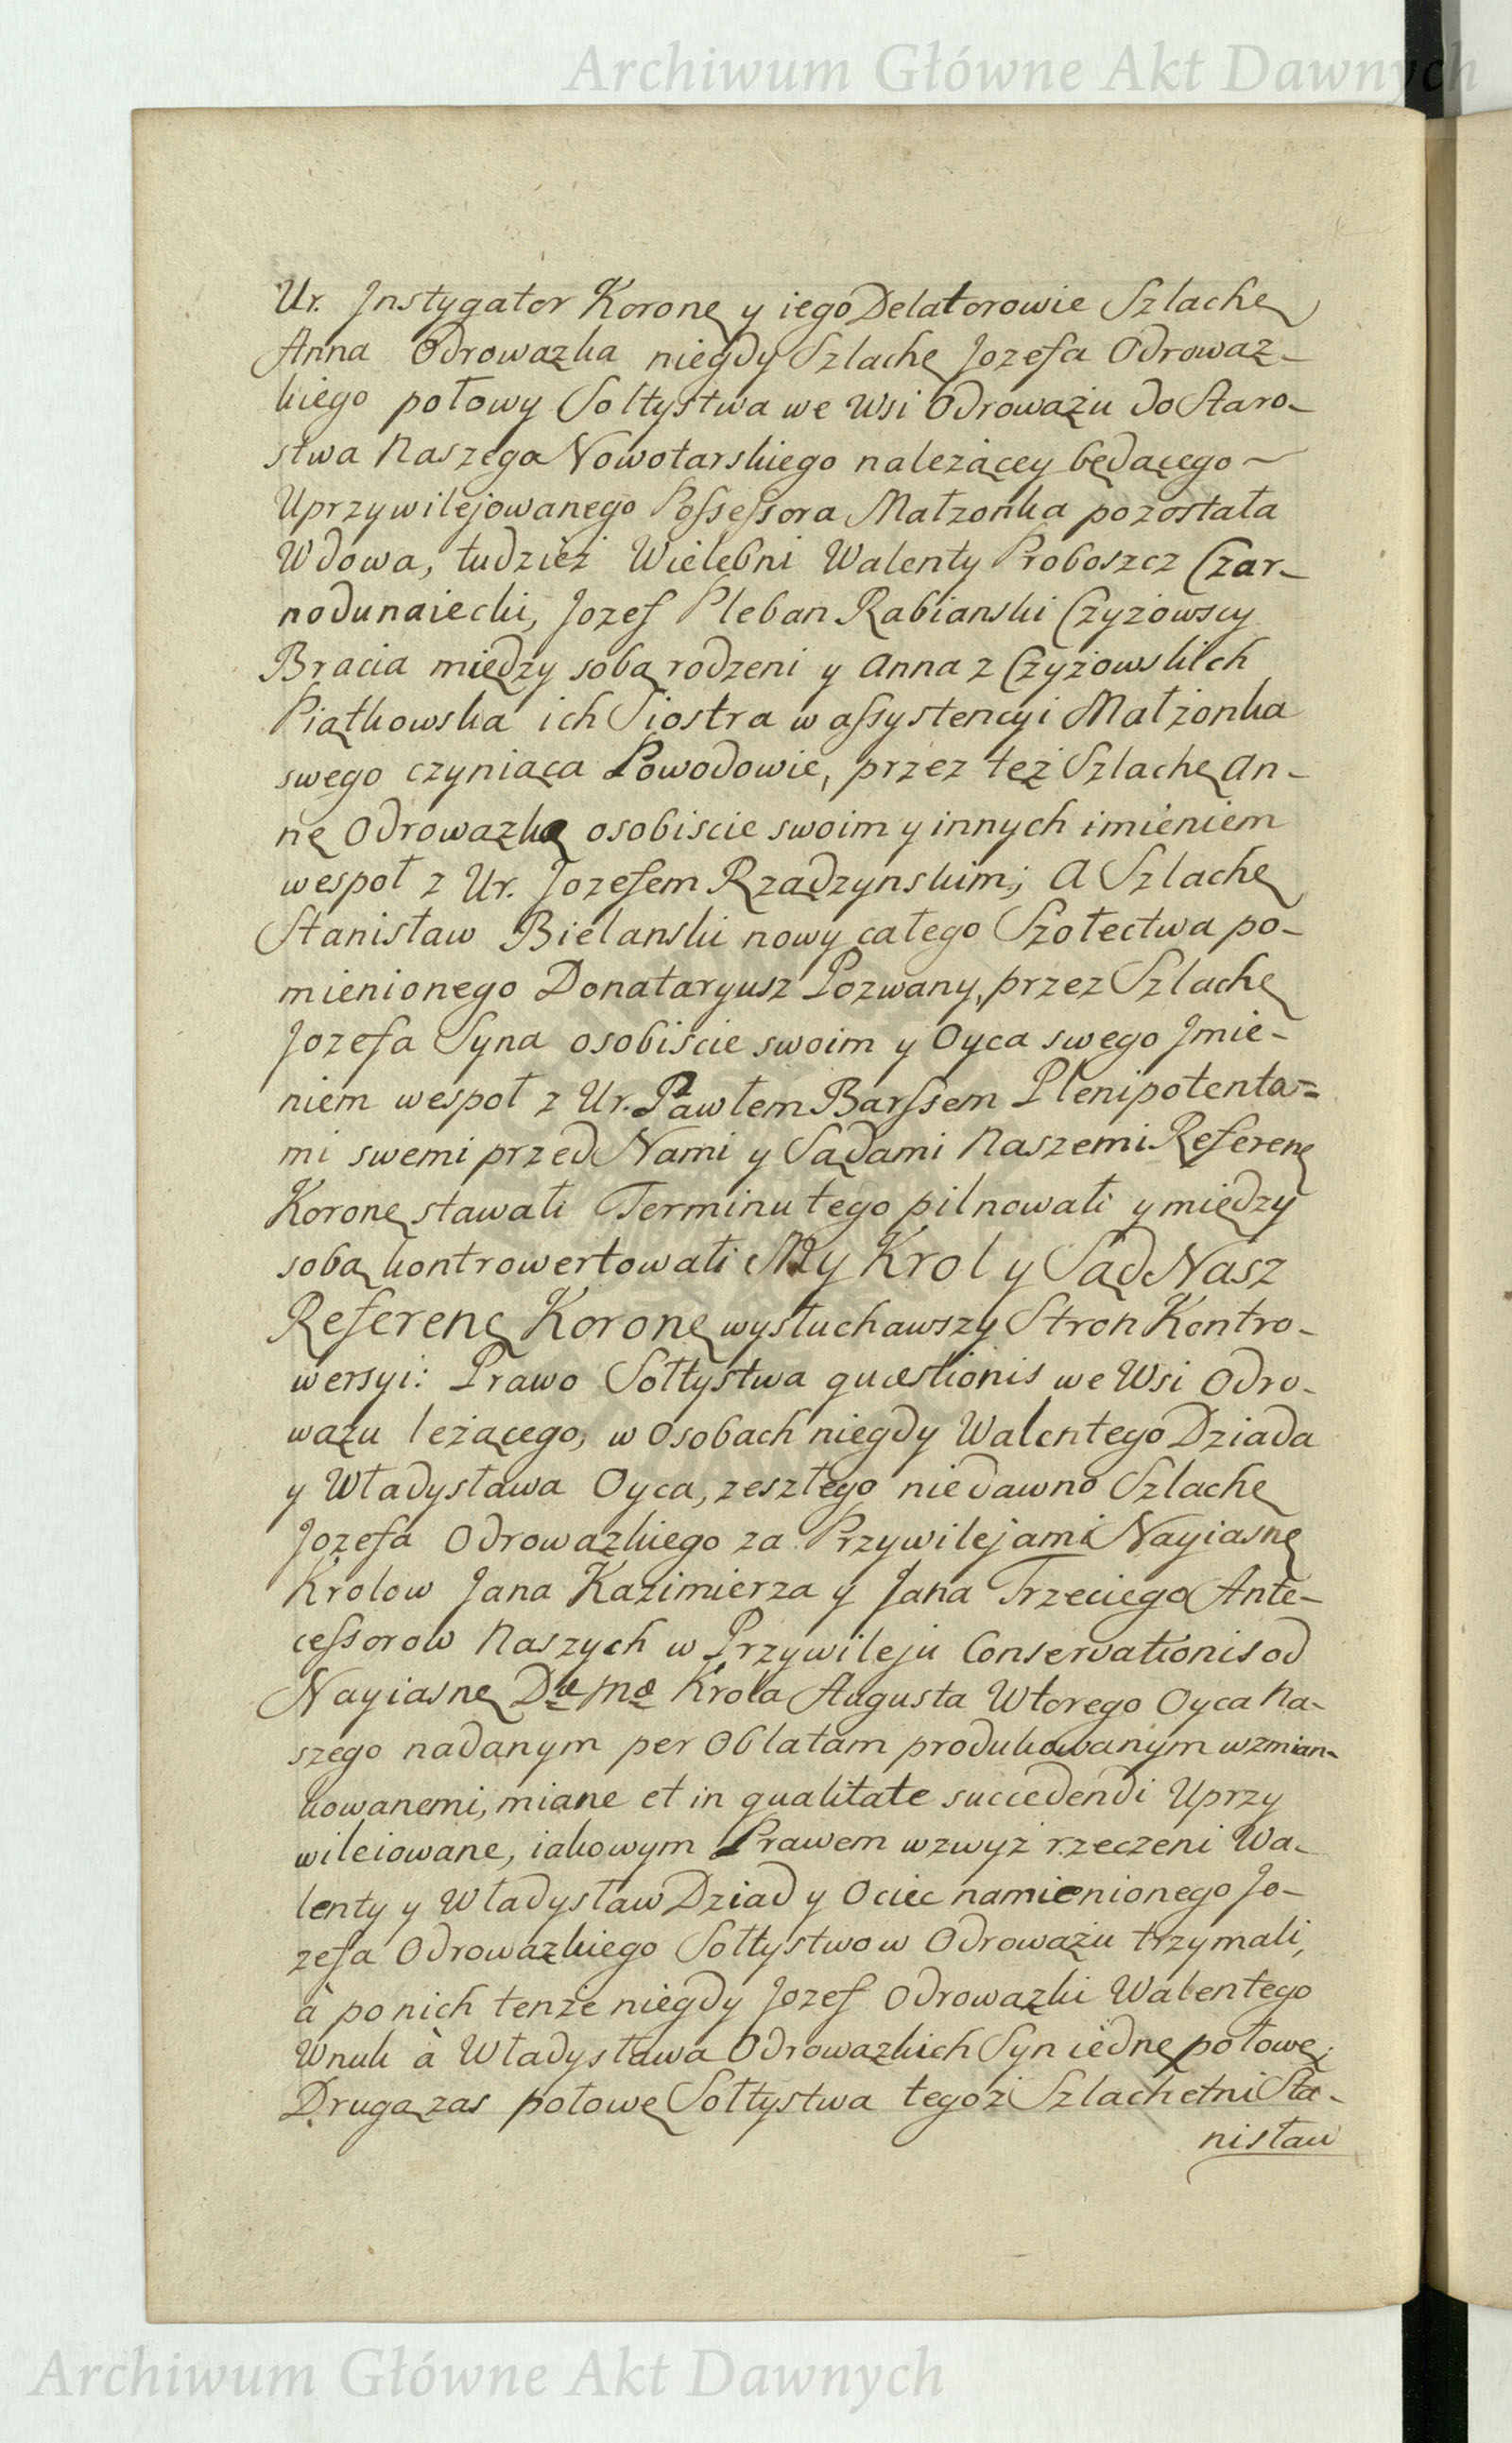 Archiwum Główne Akt Dawnych
Ur. Instygator Koronę y iego Delatorowie Szlachę
Anna Odrowązka niegdy Szlachę Jozefa Odrowaz-
kiego połowy Sołtystwa we Wsi Odrowążu do Staro-
stwa Naszego Nowotarskiego nalezącey będącego ~
Uprzywilejowanego Possessora Małzonka pozostała
Wdowa, tudziez Wielebni Walenty Proboszcz Czar-
nodunaiecki, Jozef Pleban Rabianski Czyżowscy
Bracia między sobą rodzeni y Anna z Czyżowskich
Piątkowska ich Siostra w assystencyi Małżonka
swego czyniąca Powodowie, przez też Szlachę An-
nę Odrowązkę osobiscie swoim y innych imieniem
wespoł z Ur. Jozefem Rządzynskim; A Szlachę
Stanisław Bielanski nowy całego Szołectwa po-
mienionego Donataryusz Pozwany, przez Szlachę
Jozefa Syna osobiscie swoim y Oyca swego Jmie-
niem wespoł z Ur. Pawłem Barssem Plenipotenta=
mi swemi przed Nami y Sądami Naszemi Referenę
Koronę stawali Terminu tego pilnowali y między
sobą kontrowertowali My Krol y Sąd Nasz
Referenę Koronę wysłuchawszy Stron Kontro-
wersyi: Prawo Sołtystwa quæstionis we Wsi Odro-
wążu leżącego, w Osobach niegdy Walentego Dziada
y Władysława Oyca, zeszłego niedawno Szlachę
Jozefa Odrowązkiego za Przywilejami Nayiasnę
Krolow Jana Kazimierza y Jana Trzeciego Ante-
cessorow Naszych w Przywileju Conservationis od
Nayiasnę Krola Augusta Wtorego Oyca Na-
szego nadanym per Oblatam produkowanym wzmian-
kowanemi, miane et in qualitate succedendi Uprzy
wileiowane, iakowym Prawem wzwyż rzeczeni Wa-
lenty y Władysław Dziad y Ociec namienionego Jo-
zefa Odrowązkiego Sołtystwo w Odrowążu trzymali,
à po nich tenże niegdy Jozef Odrowązki Walentego
Wnuk à Władysława Odrowązkich Syn iednę połowę;
Drugą zas połowę Sołtystwa tegoż Szlachetni Sta-
nisław
Archiwum Główne Akt Dawnych